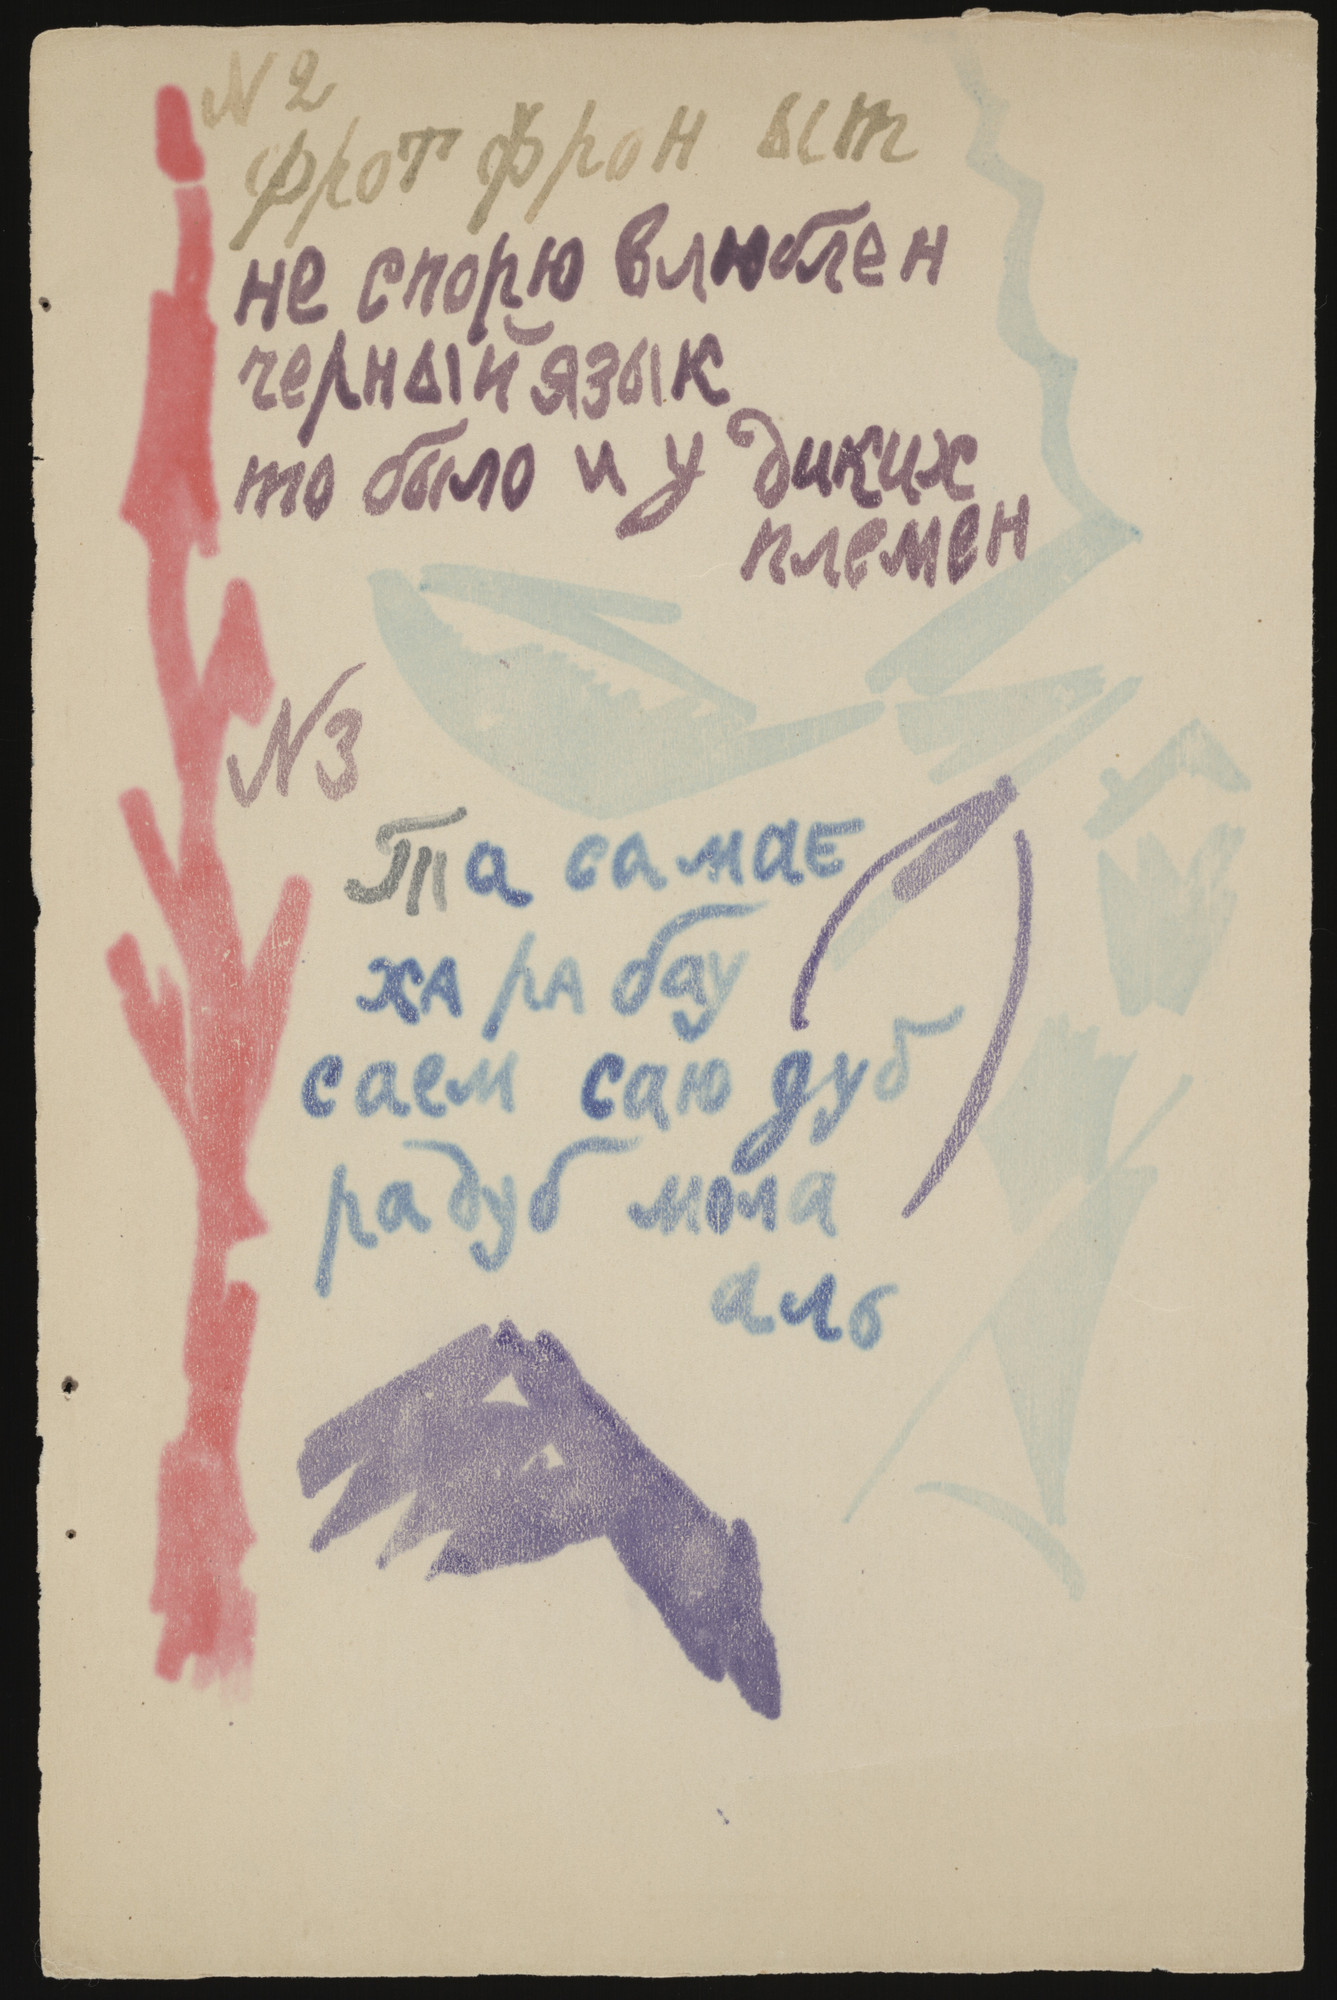 N 2
фрот фрон ыт
не спорю влюблен
черный язык
то было и у диких
племен
N3
Та са мае
ха ра бау
саем сию дуб
радуб мола
аль